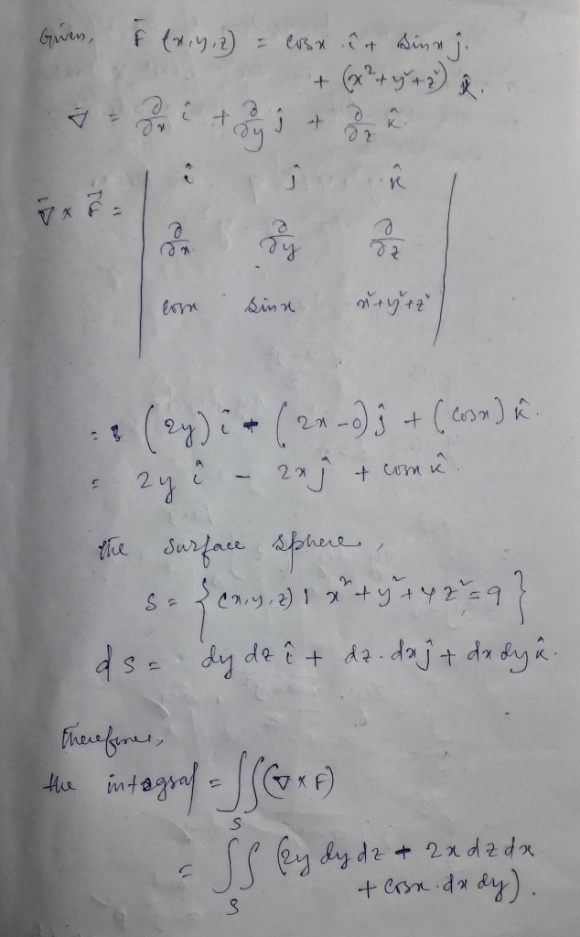 Given, F⃗ (x,y,z) = cosx î + sinx ĵ.
+ (x²+y²+z²) k̂.
∇⃗ = ∂/∂x î + ∂/∂y ĵ + ∂/∂z k̂.
∇⃗ x F⃗ = | î ĵ k̂
∂/∂x ∂/∂y ∂/∂z
cosx sinx x²+y²+z² |
= (2y) î - (2x-0) ĵ + (cosx) k̂.
= 2y î - 2x ĵ + cosx k̂.
the surface sphere,
S = {(x,y,z) | x²+y²+4z²=9}
dS = dy dz î + dz.dx ĵ + dx dy k̂.
Therefore,
the integral = ∬ₛ (∇ x F)
= ∬ₛ (2y dy dz - 2x dz dx
+ cosx.dx dy).